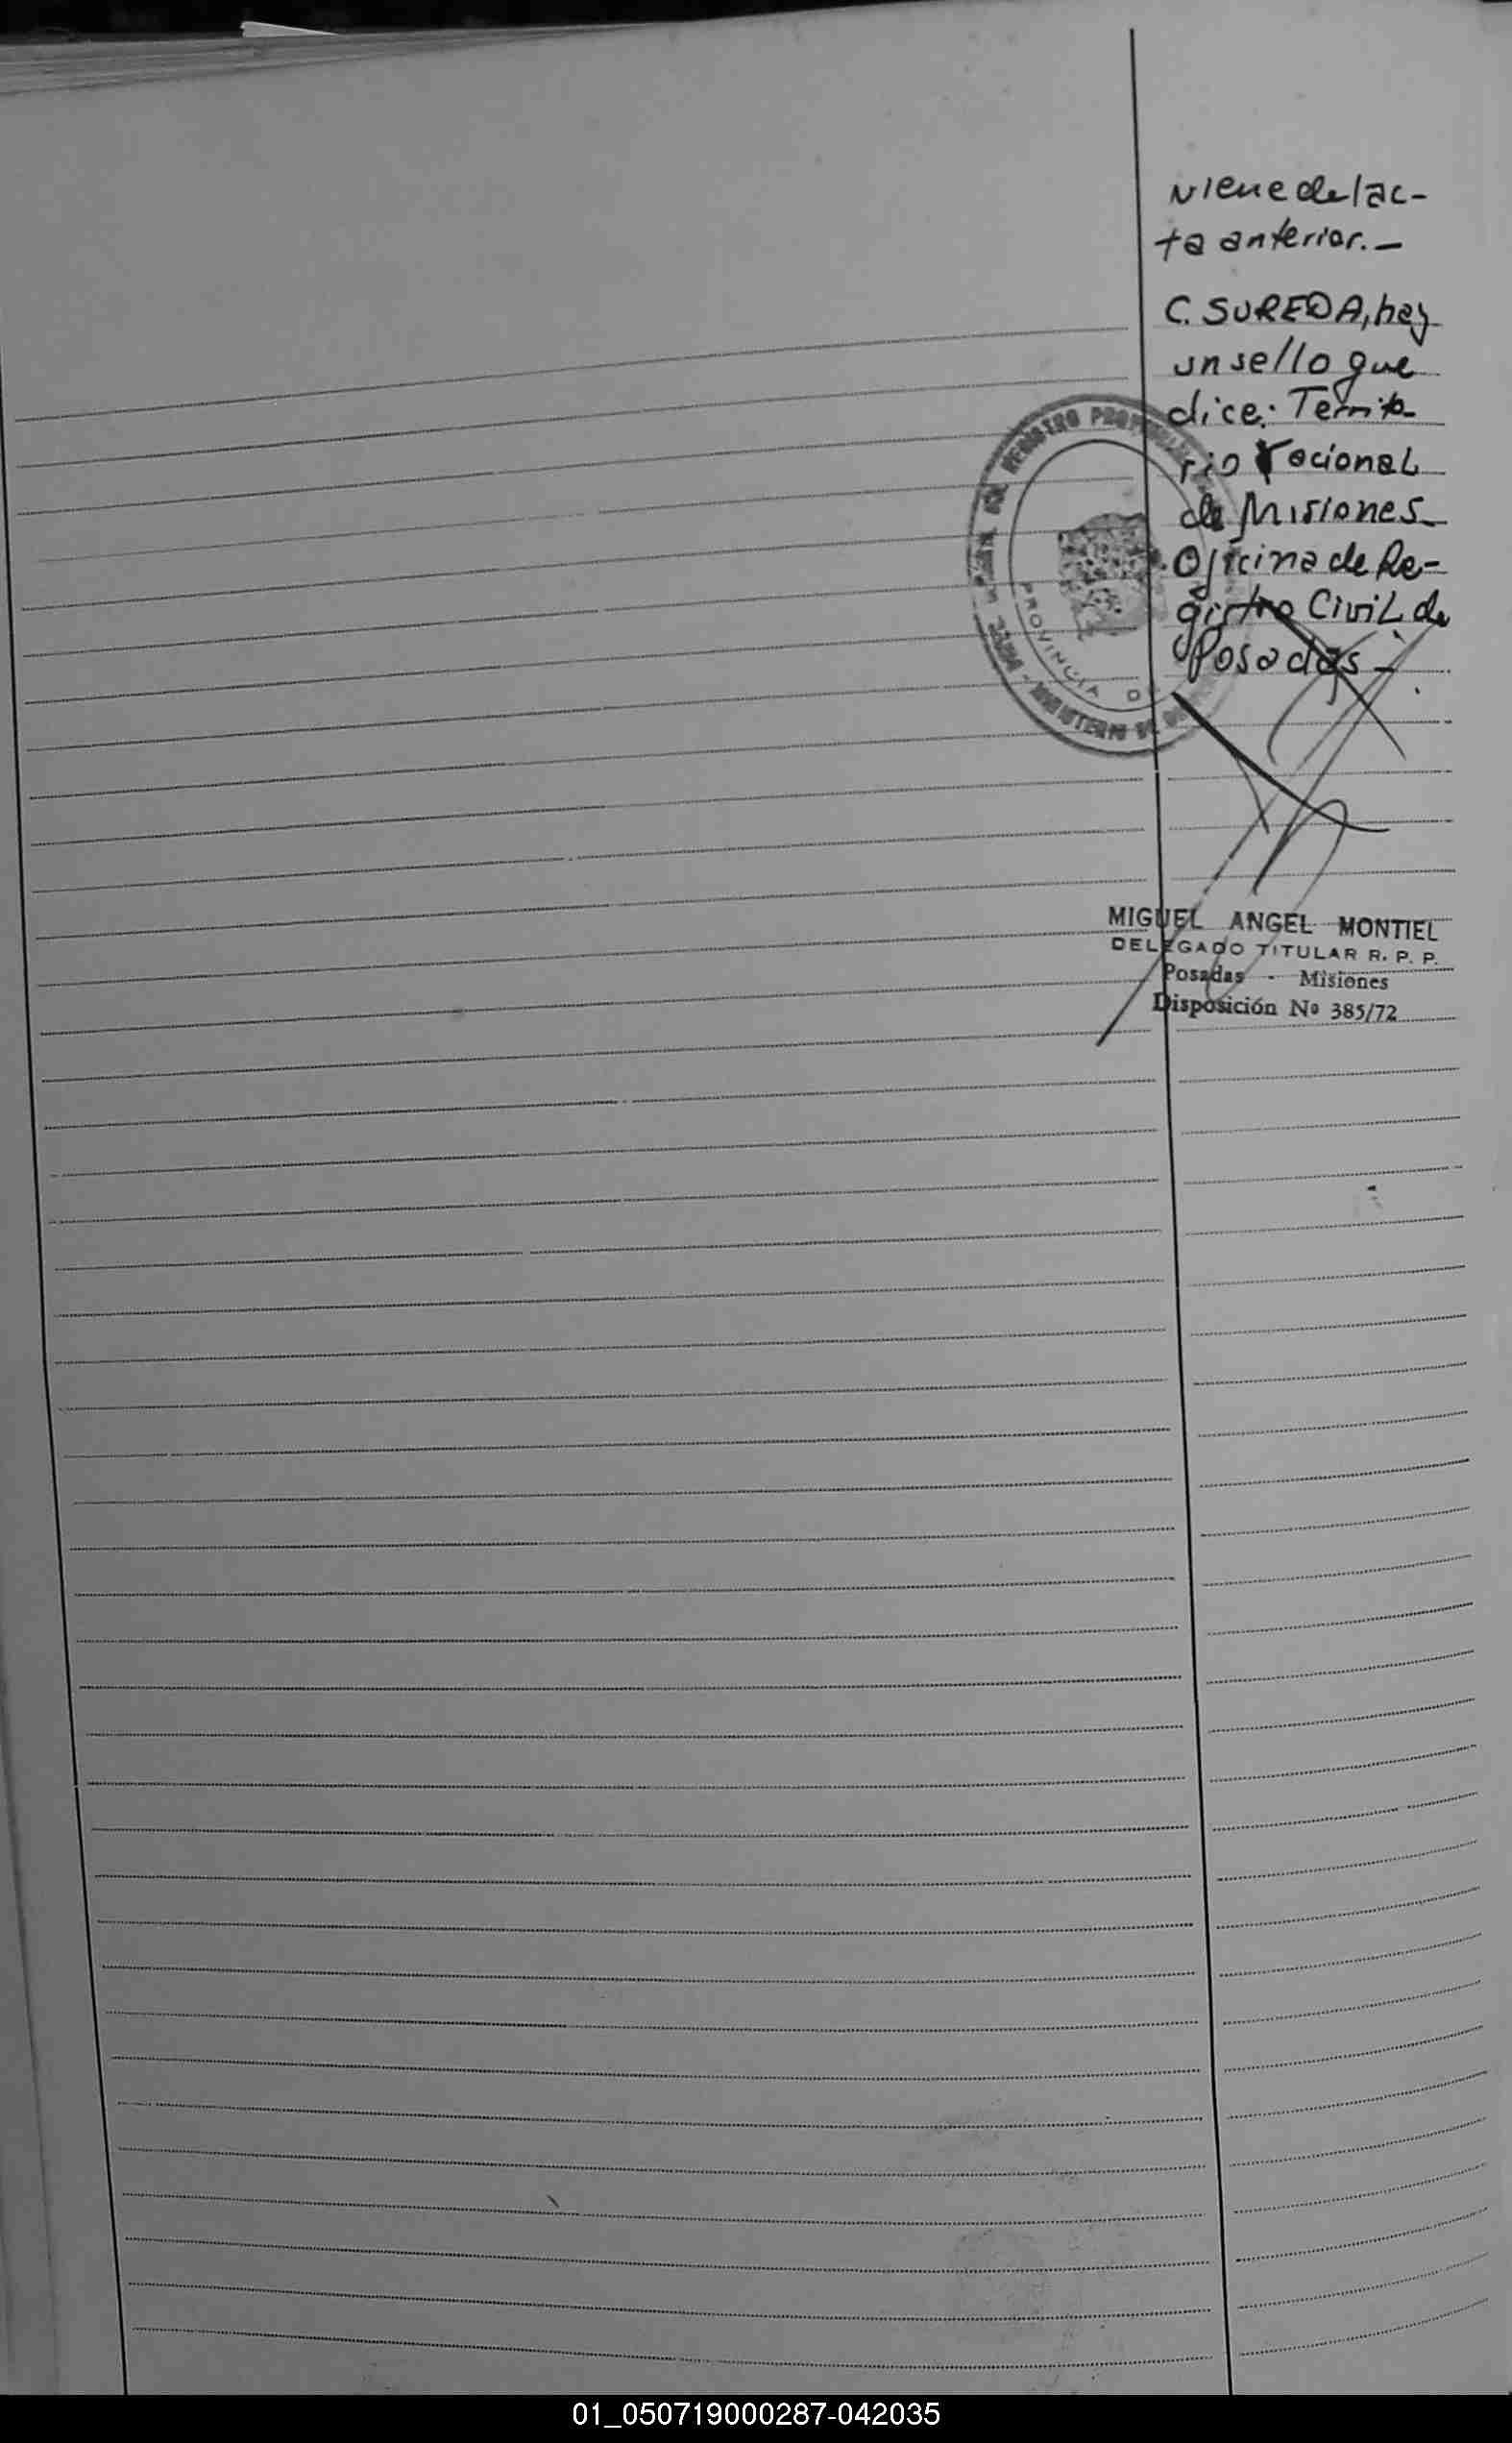 viene del ac-
ta anterior.-
C. SUREDA, hay
un sello que
dice: Territo-
rio Nacional
de Misiones-
Oficina de Re-
gistro Civil de
Posadas-
REGISTRO
PROVINCIA DE
MINISTERIO DE
MIGUEL ANGEL MONTIEL
DELEGADO TITULAR R. P. P.
Posadas - Misiones
Disposición Nº 385/72
01_050719000287-042035